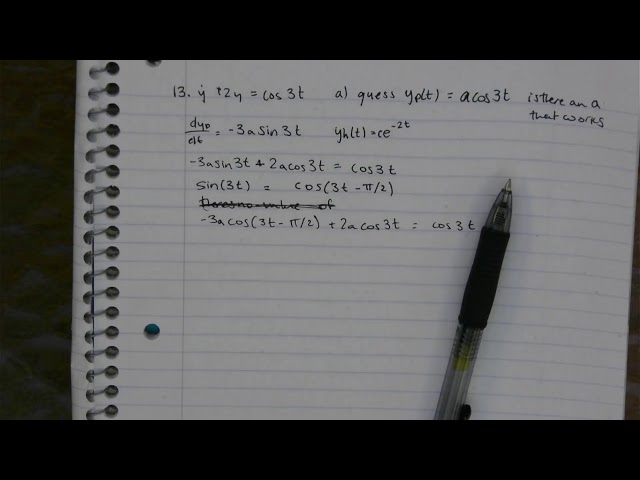 13. ẏ + 2y = cos 3t   a) guess yp(t) = a cos 3t   is there an a
that works
dyp/dt = -3a sin 3t   yh(t) = ce^-2t
-3a sin 3t + 2a cos 3t = cos 3t
sin(3t) = cos(3t - π/2)
-3a cos(3t - π/2) + 2a cos 3t = cos 3t